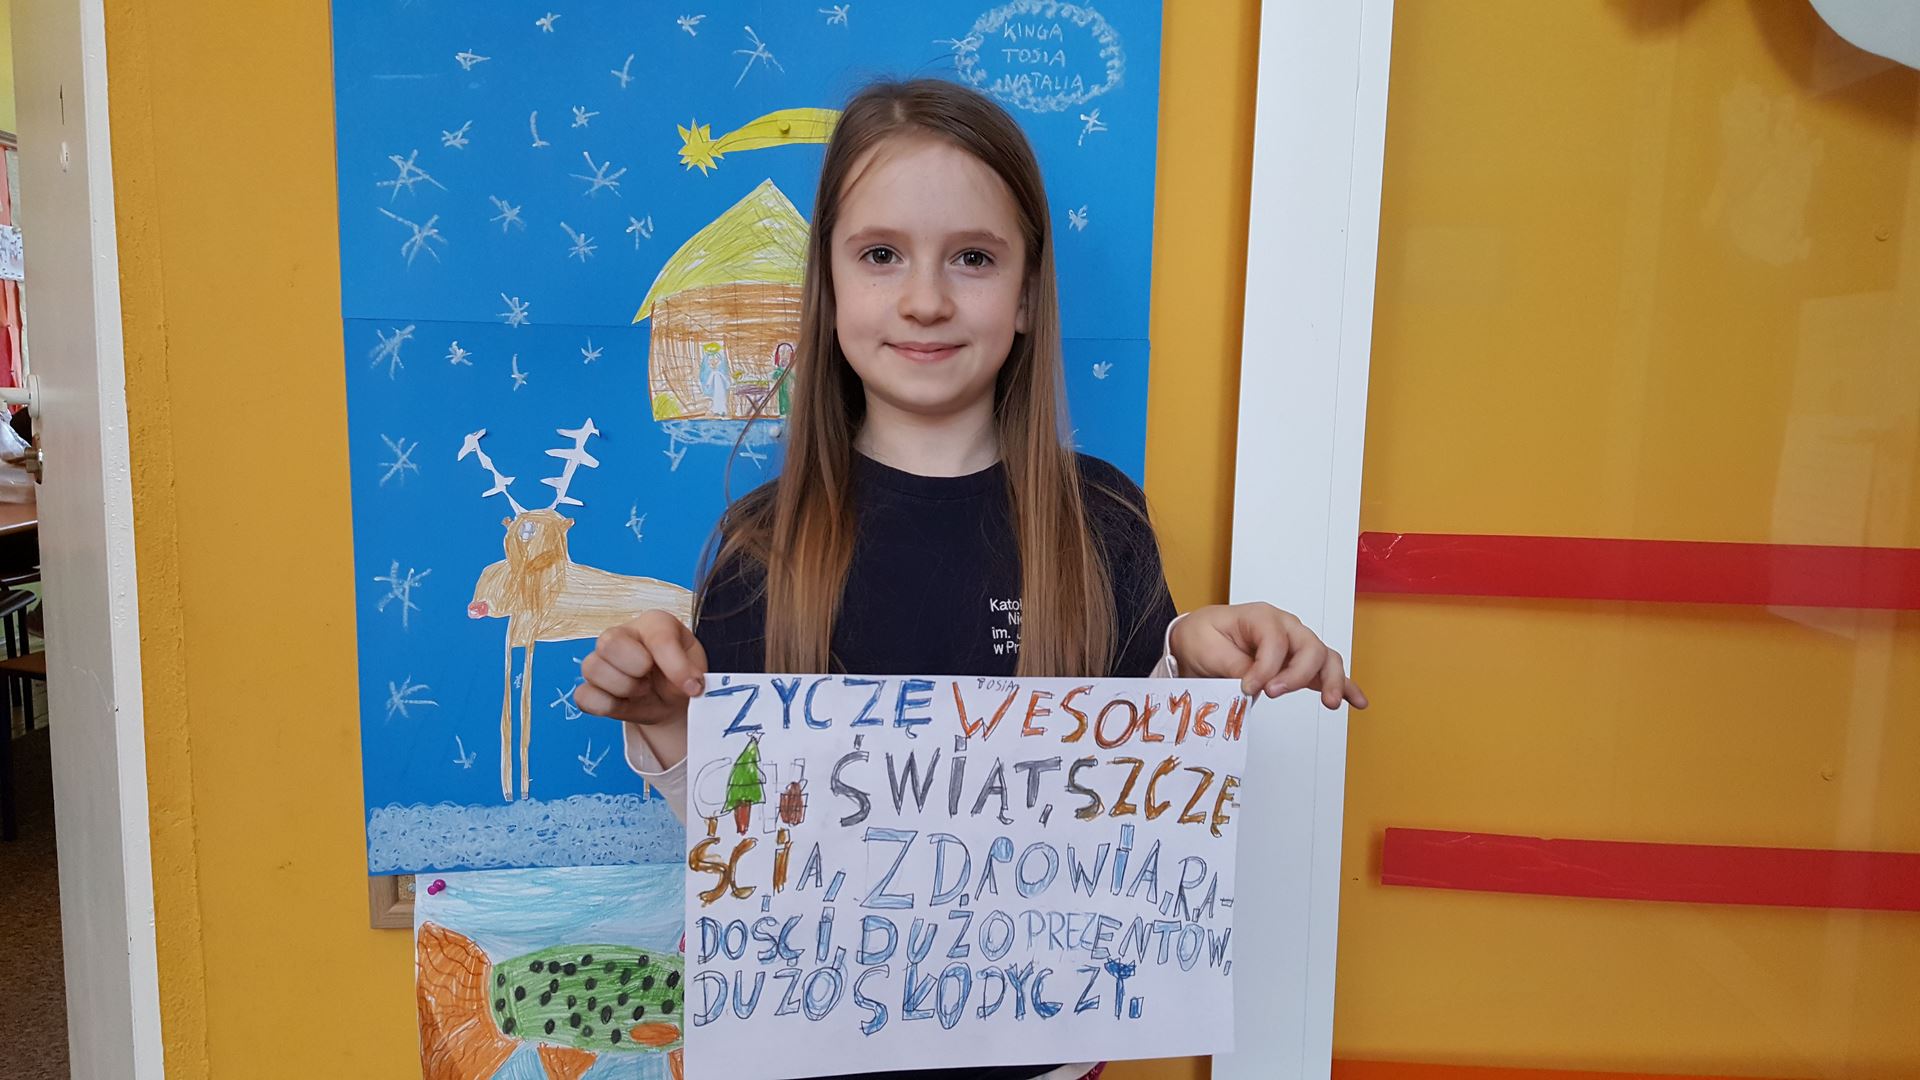 KINGA
TOSIA
NATALIA
Katol
Nie
im. J
w Pr
TOSIA
ŻYCZĘ WESOŁYCH
ŚWIĄT, SZCZĘ
ŚCIA, ZDROWIA, RA-
DOŚCI, DUŻO PREZENTÓW,
DUŻO SŁODYCZY.